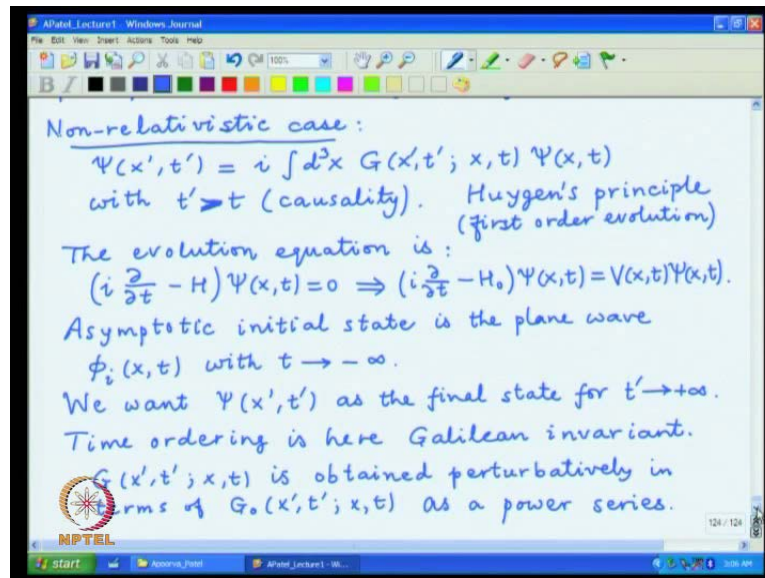 APatel_Lecture1 - Windows Journal
File Edit View Insert Actions Tools Help
100%
B I
Non-relativistic case:
Ψ(x',t') = i ∫d³x G(x',t'; x,t) Ψ(x,t)
with t' > t (causality). Huygen's principle
(first order evolution)
The evolution equation is:
(i ∂/∂t - H) Ψ(x,t) = 0 ⇒ (i ∂/∂t - H₀) Ψ(x,t) = V(x,t)Ψ(x,t).
Asymptotic initial state is the plane wave
ϕᵢ(x,t) with t → -∞.
We want Ψ(x',t') as the final state for t' → +∞.
Time ordering is here Galilean invariant.
G(x',t'; x,t) is obtained perturbatively in
terms of G₀(x',t'; x,t) as a power series.
NPTEL
124 / 124
start Apoorva_Patel APatel_Lecture1 - Wi... 3:06 AM